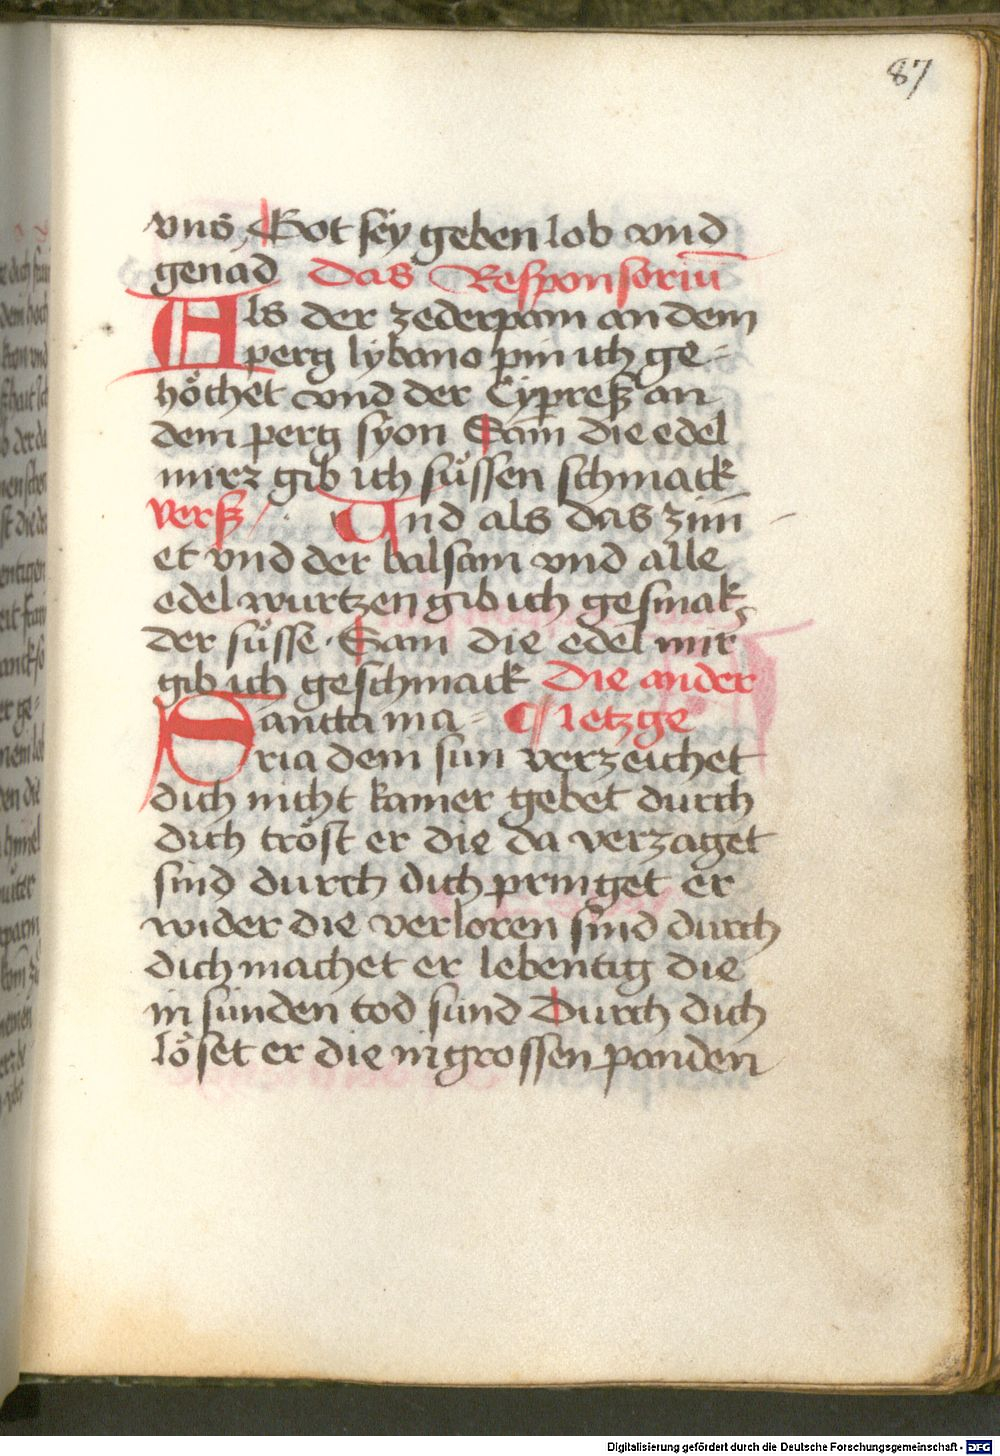 87
vns, Got sey geben lob vnd
genad Das Responsoriū
Als der zederpam an dem
perg lybano pin ich ge=
höchet vnd der Cypreß an
dem perg syon Sam die edel
mirz gib ich süssen schmack
verß / Und als das zim̄
et vnd der balsam vnd alle
edel wurtzen gib ich gesmak
der süsse · Sam die edel mir
gib ich geschmack Die ander
Sancta ma= letzge
ria dem sun verzeichet
dich nicht kainer gebet durch
dich tröst er die da verzaget
sind durch dich pringet er
wider die verloren sind durch
dich machet er lebentig die
in sünden tod sünd Durch dich
löset er die in grossen panden
Digitalisierung gefördert durch die Deutsche Forschungsgemeinschaft - DFG